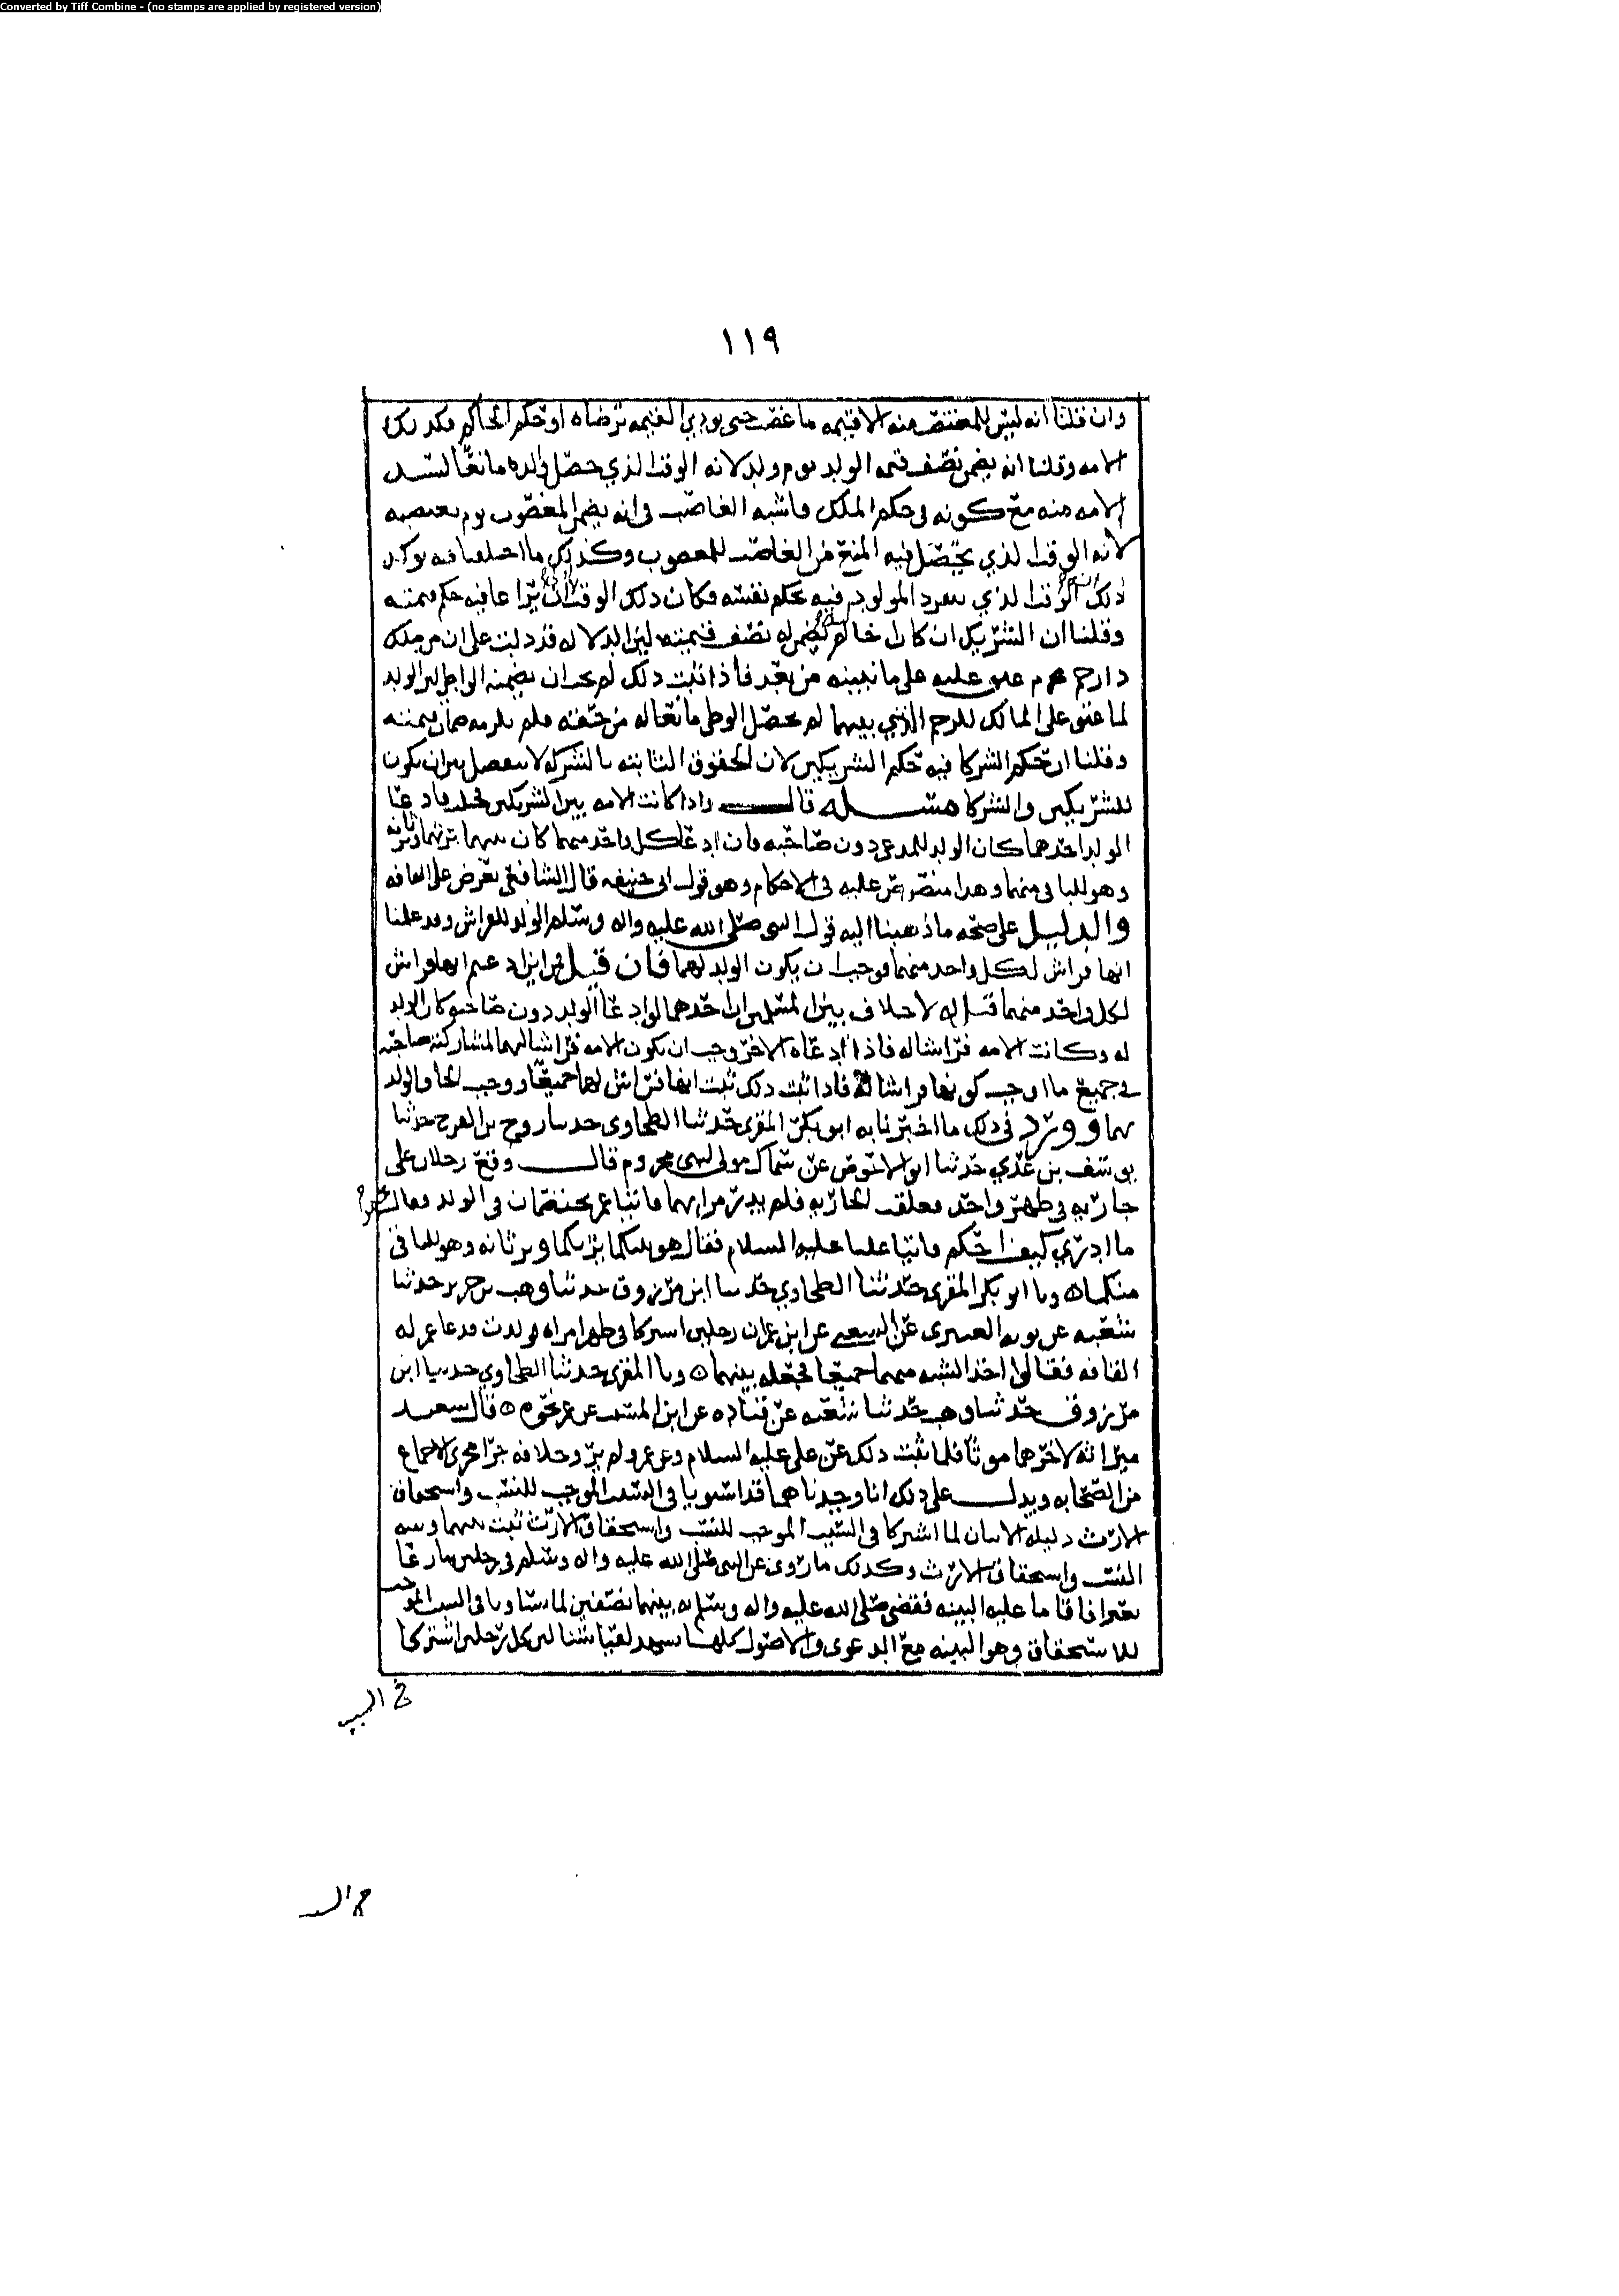 Converted by Tiff Combine - (no stamps are applied by registered version)
١١٩
وان قلنا انه ليس للمغتصب منه الا قيمه ما غصب حتى يودي القيمه برضاه او حكم الحاكم فكذلك
الامه وقلنا انه يضمن نصف قيمه الولد يوم ولد لانه الوقت الذي حصل والده مانعا لسيد
الامه منه مع كونه في حكم الملك فاشبه الغاصب في انه يضمن المغصوب يوم
لانه الوقت الذي يحصل فيه المنع من الغاصب للمغصوب وكذلك ما اختلفنا فيه يوكد
ذلك ان الوقت الذي المولود فيه بحكم نفسه فكان ذلك الوقت يراعا فيه حكم قيمته
وقلنا ان الشريك ان كان خالم يضمن له نصف قيمته لان الدلاله قد دلت على ان من ملك
ذا رحم محرم عتق عليه على ما نبينه من بعد فاذا ثبت ذلك لم يجب ان يضمنه الواطي لان الولد
لما عتق على المالك للرحم الذي بينهما لم يحصل الوطي مانعا له من حقه فلم يلزمه ضمان قيمته
وقلنا ان حكم الشركا فيه حكم الشريكين لان الحقوق الثابته بالشركه لا ينفصل بين ان يكون
للشريكين والشركا مسئله قال واذا كانت الامه بين الشريكين فحملت فادعا
الولد احدهما كان الولد للمدعي دون صاحبه فان ادعا كل واحد منهما كان بينهما يرثهما ويرثانه
وهو للباقي منهما وهذا منصوص عليه في الاحكام وهو قول ابي حنيفه قال الشافعي يعرض على القافه
والدليل على صحه ما ذهبنا اليه قول النبي صلى الله عليه واله وسلم الولد للفراش وقد علمنا
انها فراش لكل واحد منهما فوجب ان يكون الولد لهما فان قيل من اين ادعيتم انها فراش
لكل واحد منهما قيل له لا خلاف بين المسلمين ان احدهما لو ادعا الولد دون صاحبه كان الولد
له وكانت الامه فراشا له فاذا ادعاه الاخر وجب ان يكون الامه فراشا لهما لمشاركته صاحبه
في جميع ما اوجب كونها فراشا له فاذا ثبت ذلك ثبت انها فراش لهما جميعا ووجب الحاق الولد
بهما وورد في ذلك ما اخبرنا به ابو بكر المقري حدثنا الطحاوي حدثنا روح بن الفرج حدثنا
يوسف بن عدي حدثنا ابو الاحوص عن سماك مولى لبني مخزوم قال وقع رجلان على
جاريه في طهر واحد فعلقت الجاريه فلم يدر من ايهما فاتيا عمر يختصمان في الولد فقال عمر
ما ادري كيف احكم فاتيا عليا عليه السلام فقال هو بينكما يرثكما وترثانه وهو للباقي
منكما ونا ابو بكر المقري حدثنا الطحاوي حدثنا ابن مرزوق حدثنا وهب بن جرير حدثنا
شعبه عن توبه العنبري عن الشعبي عن ابن عمر ان رجلين اشتركا في طهر امراه فولدت فدعا عمر له
القافه فقالوا اخذ الشبه منهما جميعا فجعله بينهما ونا المقري حدثنا الطحاوي حدثنا ابن
مرزوق حدثنا وهب حدثنا شعبه عن قتاده عن ابن المسيب عن عمر نحوه قال سعيد
ميراثه لاخرهما موتا فلما ثبت ذلك عن علي عليه السلام وعن عمر ولم يرو خلافه جرا مجرى الاجماع
من الصحابه ويدل على ذلك انا وجدناهما قد استويا في السبب الموجب للنسب واستحقاق
الارث دليله الابنان لما اشتركا في السبب الموجب للنسب واستحقاق الارث ثبت بينهما
النسب واستحقاق الارث وكذلك ما روي عن النبي صلى الله عليه واله وسلم في رجلين تنازعا
بعيرا فاقاما عليه البينه فقضى صلى الله عليه واله وسلم به بينهما نصفين لما تساويا في السبب الموجب
للاستحقاق وهو البينه مع الدعوى والاصول كلها تشهد لقياسنا لان كل رجلين اشتركا